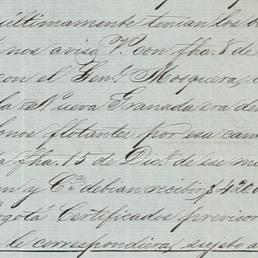 últimamente tenian los b
nos avisa V. con fha. 8 de
con el Genl. Mosquera,
la Nueva Granada era de
onos flotantes por esa cam
fha. 15 de Dice. de ese m
n y Ca. debian recibir $ 420
ogotá Certificados provisor
le correspondiera, sujeto a